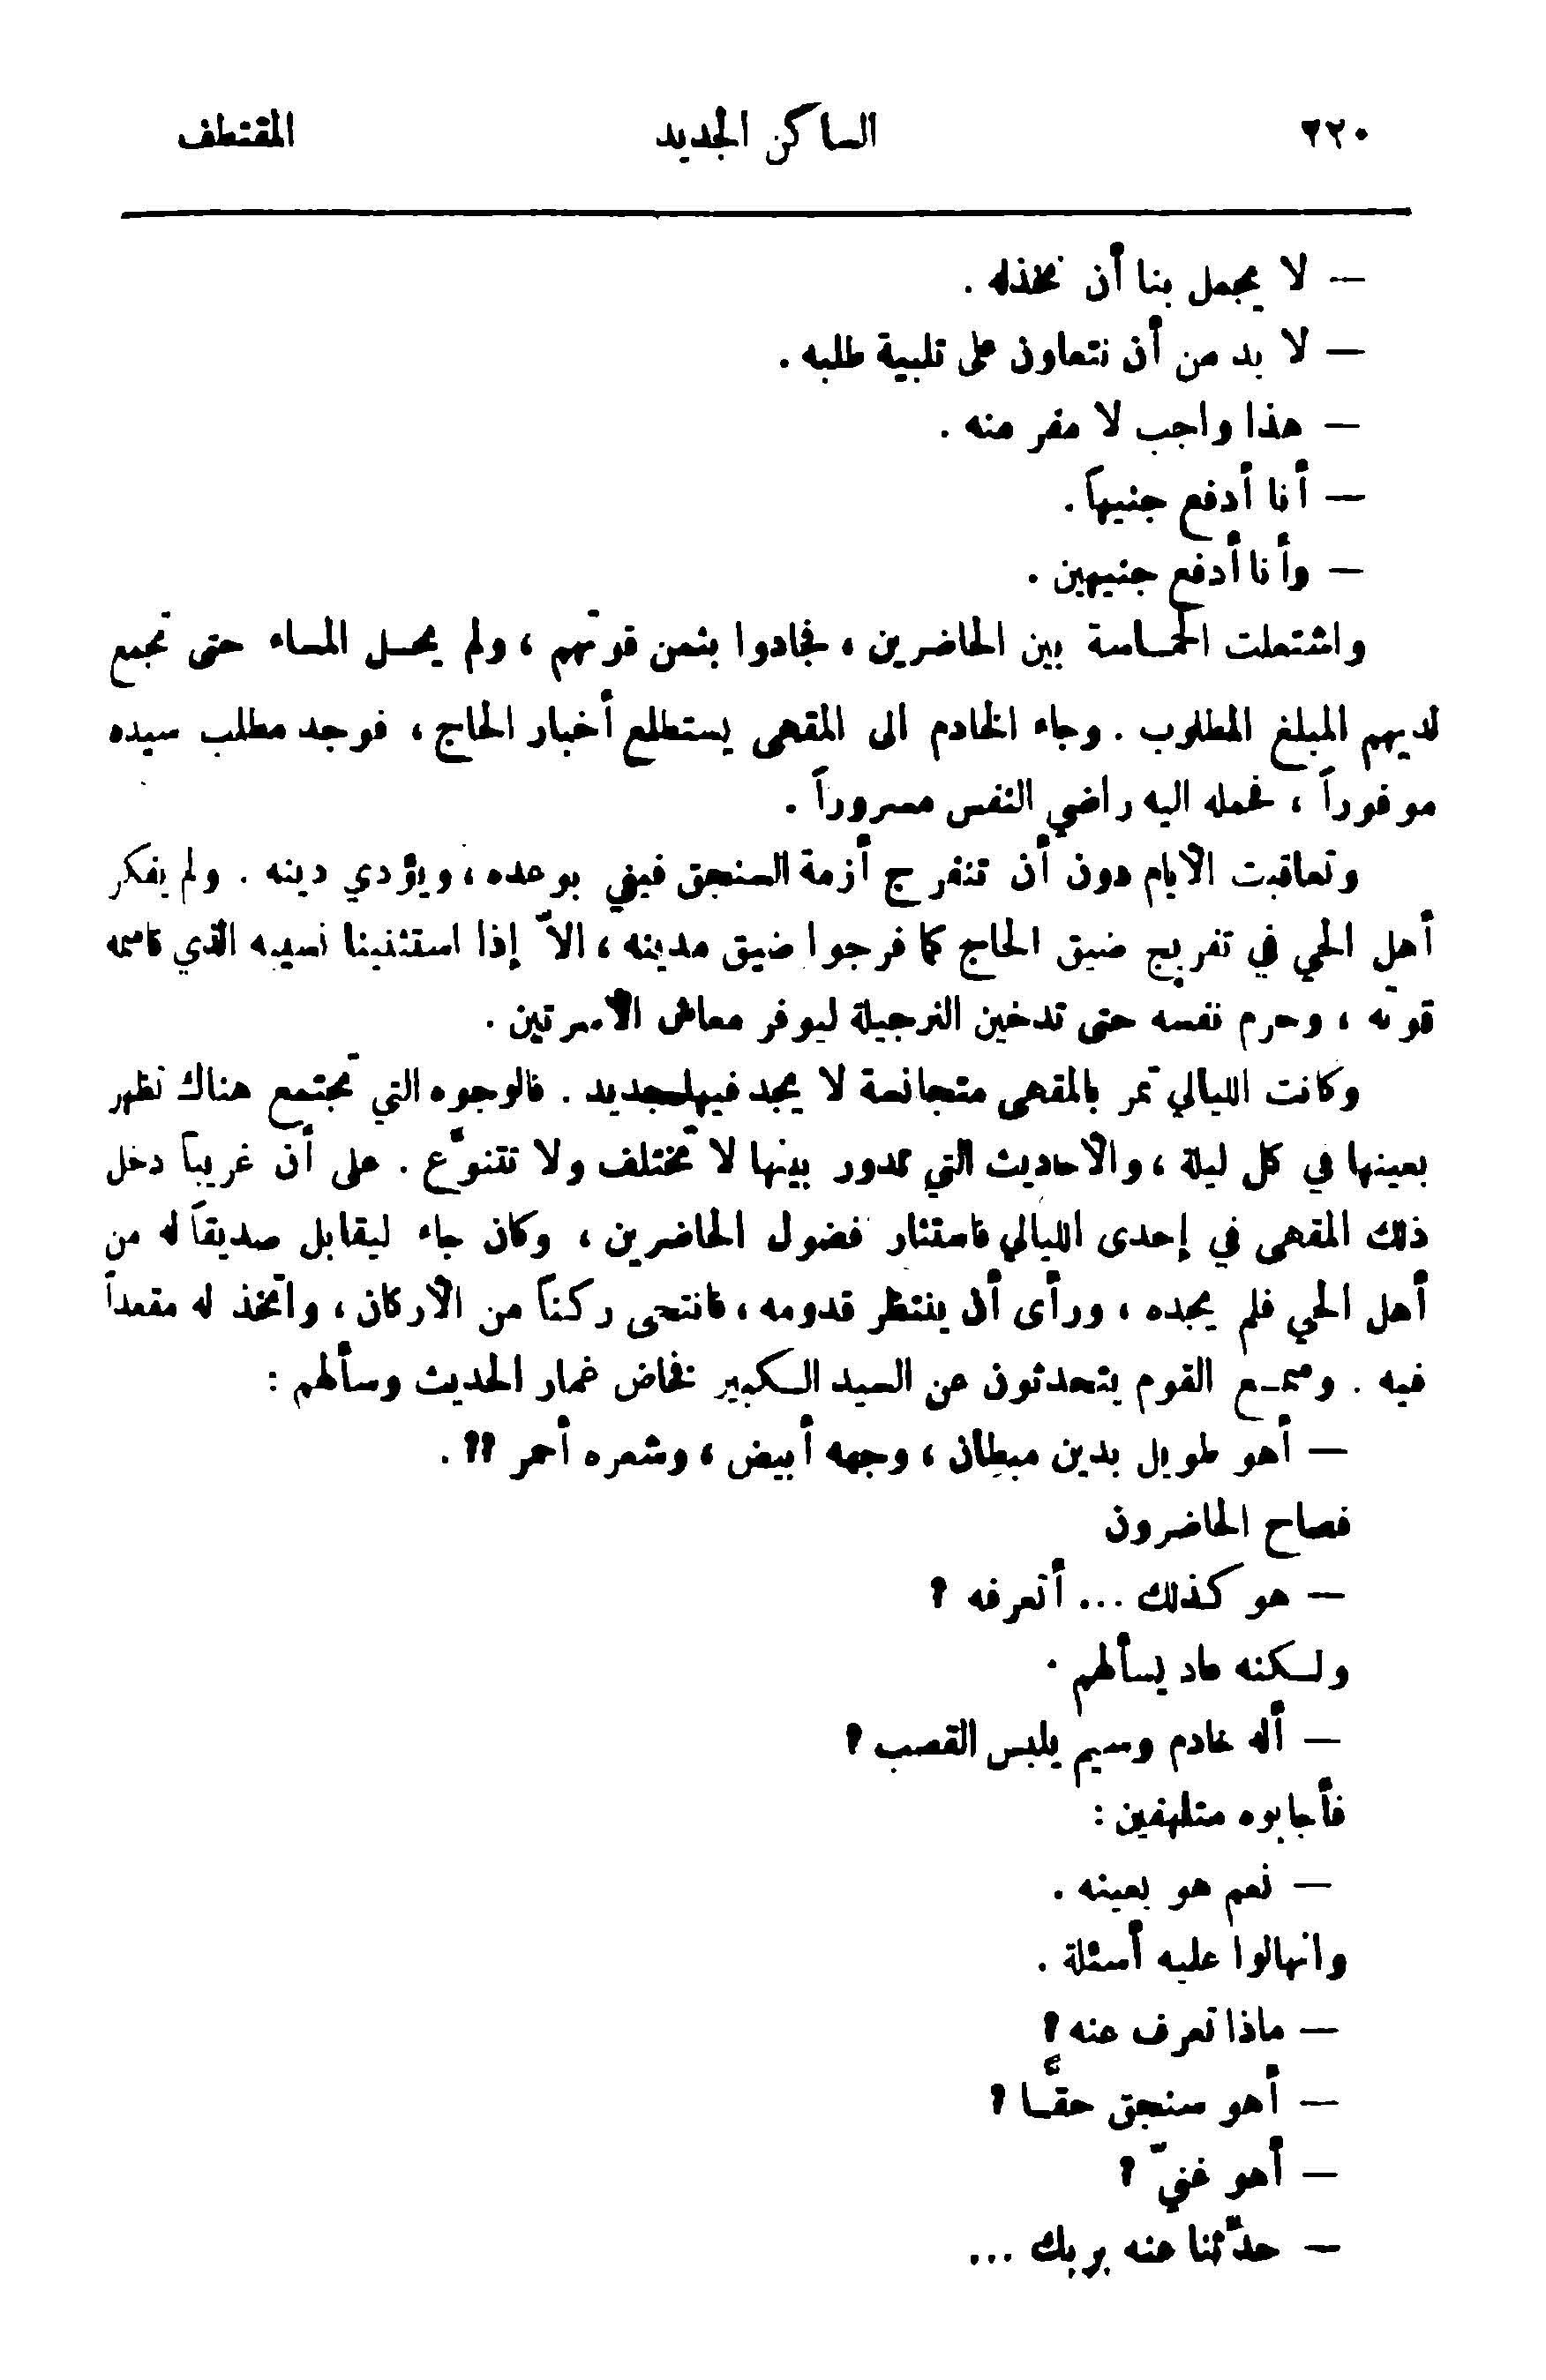 ٢٢٠ الساكن الجديد المقتطف
— لا يجمل بنا أن نخذله .
— لا بد من أن نتعاون على تلبية طلبه .
— هذا واجب لا مفر منه .
— أنا أدفع جنيهاً .
— وأنا أدفع جنيهين .
واشتعلت الحماسة بين الحاضرين ، فجادوا بثمن قوتهم ، ولم يحل المساء حتى تجمع
لديهم المبلغ المطلوب . وجاء الخادم الى المقهى يستطلع أخبار الحاج ، فوجد مطلب سيده
موفوراً ، فحمله اليه راضي النفس مسروراً .
وتعاقبت الأيام دون أن تنفرج أزمة السنجق فيفي بوعده ، ويؤدي دينه . ولم يفكر
أهل الحي في تفريج ضيق الحاج كما فرجوا ضيق مدينه ، الاّ إذا استثنينا نسيبه الذي قاسمه
قوته ، وحرم نفسه حتى تدخين النرجيلة ليوفر معاش الأسرتين .
وكانت الليالي تمر بالمقهى متجانسة لا يجد فيها جديد . فالوجوه التي تجتمع هناك تظهر
بعينها في كل ليلة ، والأحاديث التي تدور بينها لا تختلف ولا تتنوّع . على أن غريباً دخل
ذلك المقهى في إحدى الليالي فاستثار فضول الحاضرين ، وكان جاء ليقابل صديقاً له من
أهل الحي فلم يجده ، ورأى أن ينتظر قدومه ، فانتحى ركناً من الأركان ، واتخذ له مقعداً
فيه . وسمع القوم يتحدثون عن السيد الكبير فخاض غمار الحديث وسألهم :
— أهو طويل بدين مبطان ، وجهه أبيض ، وشعره أحمر ؟؟ .
فصاح الحاضرون
— هو كذلك ... أتعرفه ؟
ولكنه عاد يسألهم .
— أله خادم وسيم يلبس القصب ؟
فأجابوه متلهفين :
— نعم هو بعينه .
وانهالوا عليه أسئلة .
— ماذا تعرف عنه ؟
— أهو سنجق حقًّا ؟
— أهو غنيّ ؟
— حدّثنا عنه بربك ...